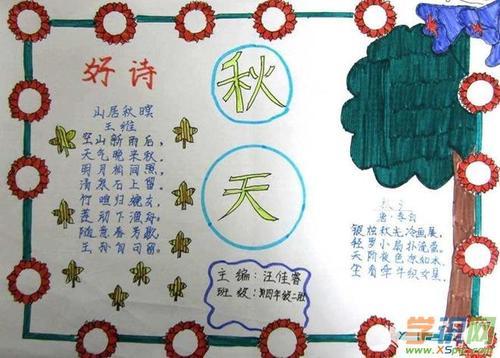 好诗
山居秋暝
王维
空山新雨后,
天气晚来秋.
明月松间照,
清泉石上留.
竹喧归浣女,
莲动下渔舟.
随意春芳歇,
王孙自可留.
秋
天
主编:汪佳睿
班级:四年级二班
银独秋光冷画屏,
轻罗小扇扑流萤.
天阶夜色凉如水,
坐看牵牛织女星.
学识网